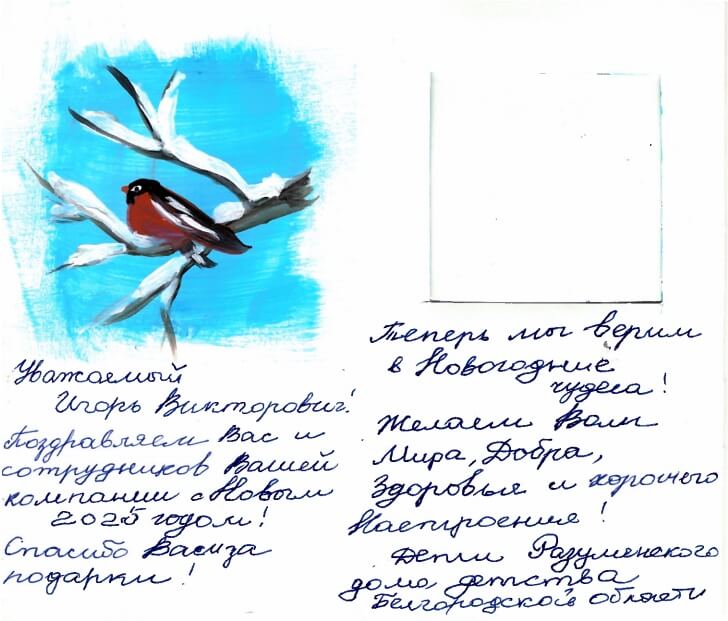 Уважаемый
Игорь Викторович!
Поздравляем Вас и
сотрудников Вашей
компании с Новым
2025 годом!
Спасибо Вам за
подарки!
Теперь мы верим
в Новогодние
чудеса!
Желаем Вам
Мира, Добра,
Здоровья и хорошего
Настроения!
Дети Разуменского
дома детства
Белгородской области